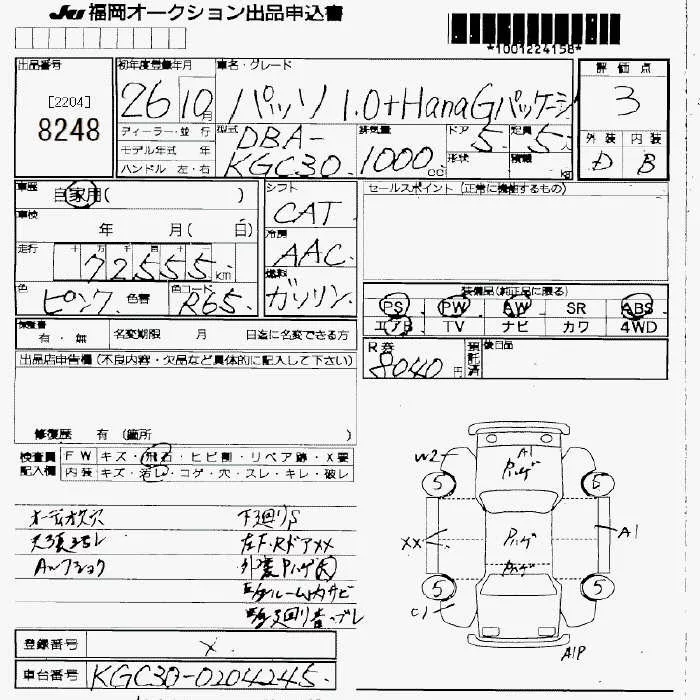 JU 福岡オークション出品申込書
*1001224158*
出品番号
[2204]
8248
初年度登録年月
26 10月
車名・グレード
パッソ 1.0+HanaGパッケージ
ディーラー・並 行
モデル年式 年
ハンドル 左・右
型式
DBA-
KGC30
排気量
1000 cc
ドア
5
定員
5
形状
積載
kg
評価点
3
外装 内装
D B
車歴
自家用( )
車検
年 月( 日)
走行
十 万 千 百 十 一
72555 km
色
ピンク 色替
色コード
R65
シフト
CAT
冷房
AAC
燃料
ガソリン
セールスポイント(正常に機能するもの)
装備品(純正品に限る)
PS PW AW SR ABS
エアB TV ナビ カワ 4WD
保証書
有・無
名変期限 月 日迄に名変できる方
R券
8040円
預託済
後日品
出品店申告欄(不良内容・欠品など具体的に記入して下さい)
修復歴 有(箇所 )
検査員
記入欄
FW キズ・飛石・ヒビ割・リペア跡・X要
内装 キズ・汚レ・コゲ・穴・スレ・キレ・破レ
オーディオ欠穴
天張汚レ
下廻りS
左F・RドアXX
W2
A1
5
5
XX
A1
5
5
C1
A1P
登録番号
X
車台番号
KGC30-0204245